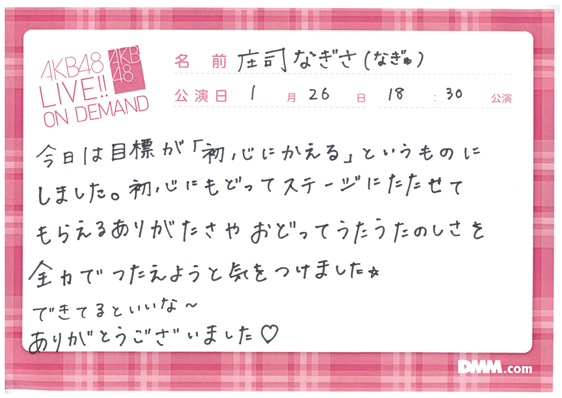 AKB48
LIVE!!
ON DEMAND
AKB
48
名 前 庄司なぎさ(なぎゅ)
公演日 1 月 26 日 18 : 30 公演
今日は目標が「初心にかえる」というものに
しました。初心にもどってステージにたたせて
もらえるありがたさや おどってうたうたのしさを
全力でつたえようと気をつけました☆
できてるといいな〜
ありがとうございました♡
DMM.com